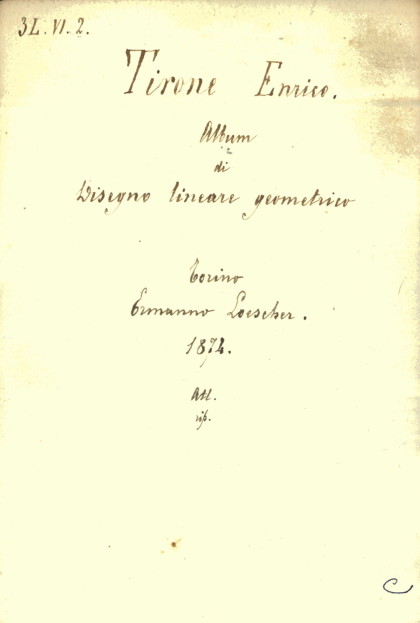 3L. VI. 2.
Tirone Enrico.
Album
di
Disegno lineare geometrico
Torino
Ermanno Loescher.
1874.
Atl.
rip.
C